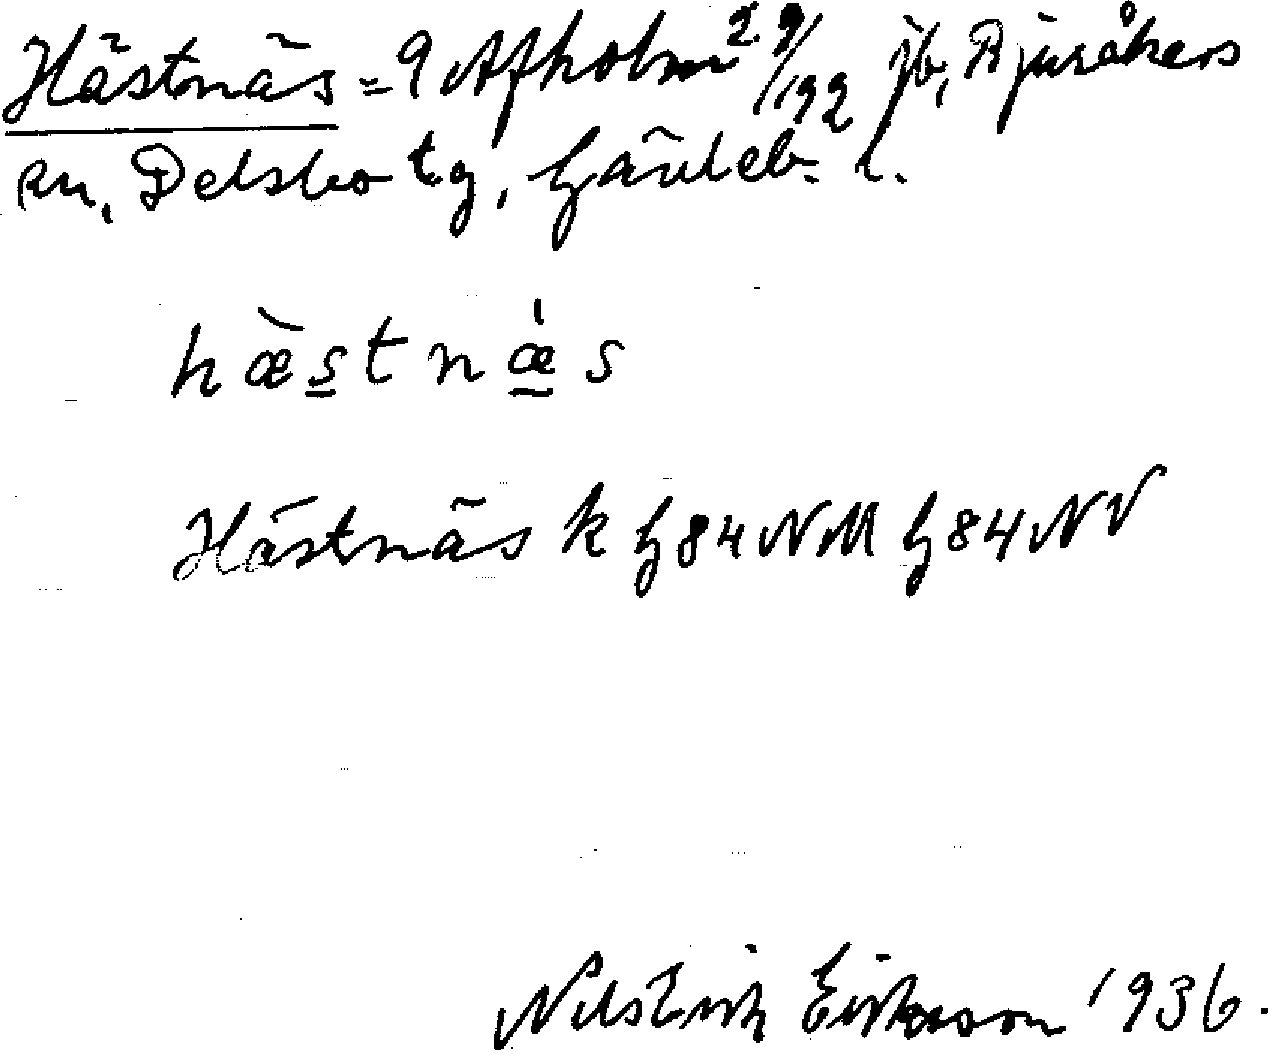 Hästnäs = 9 Afholm 29/192 jb, Bjuråkers
sn, Delsbo tg, Gävleb. l.
hæ̀s̲tnǽ̲s
Hästnäs k G84NM G84NV
Nils Erik Eriksson 1936.